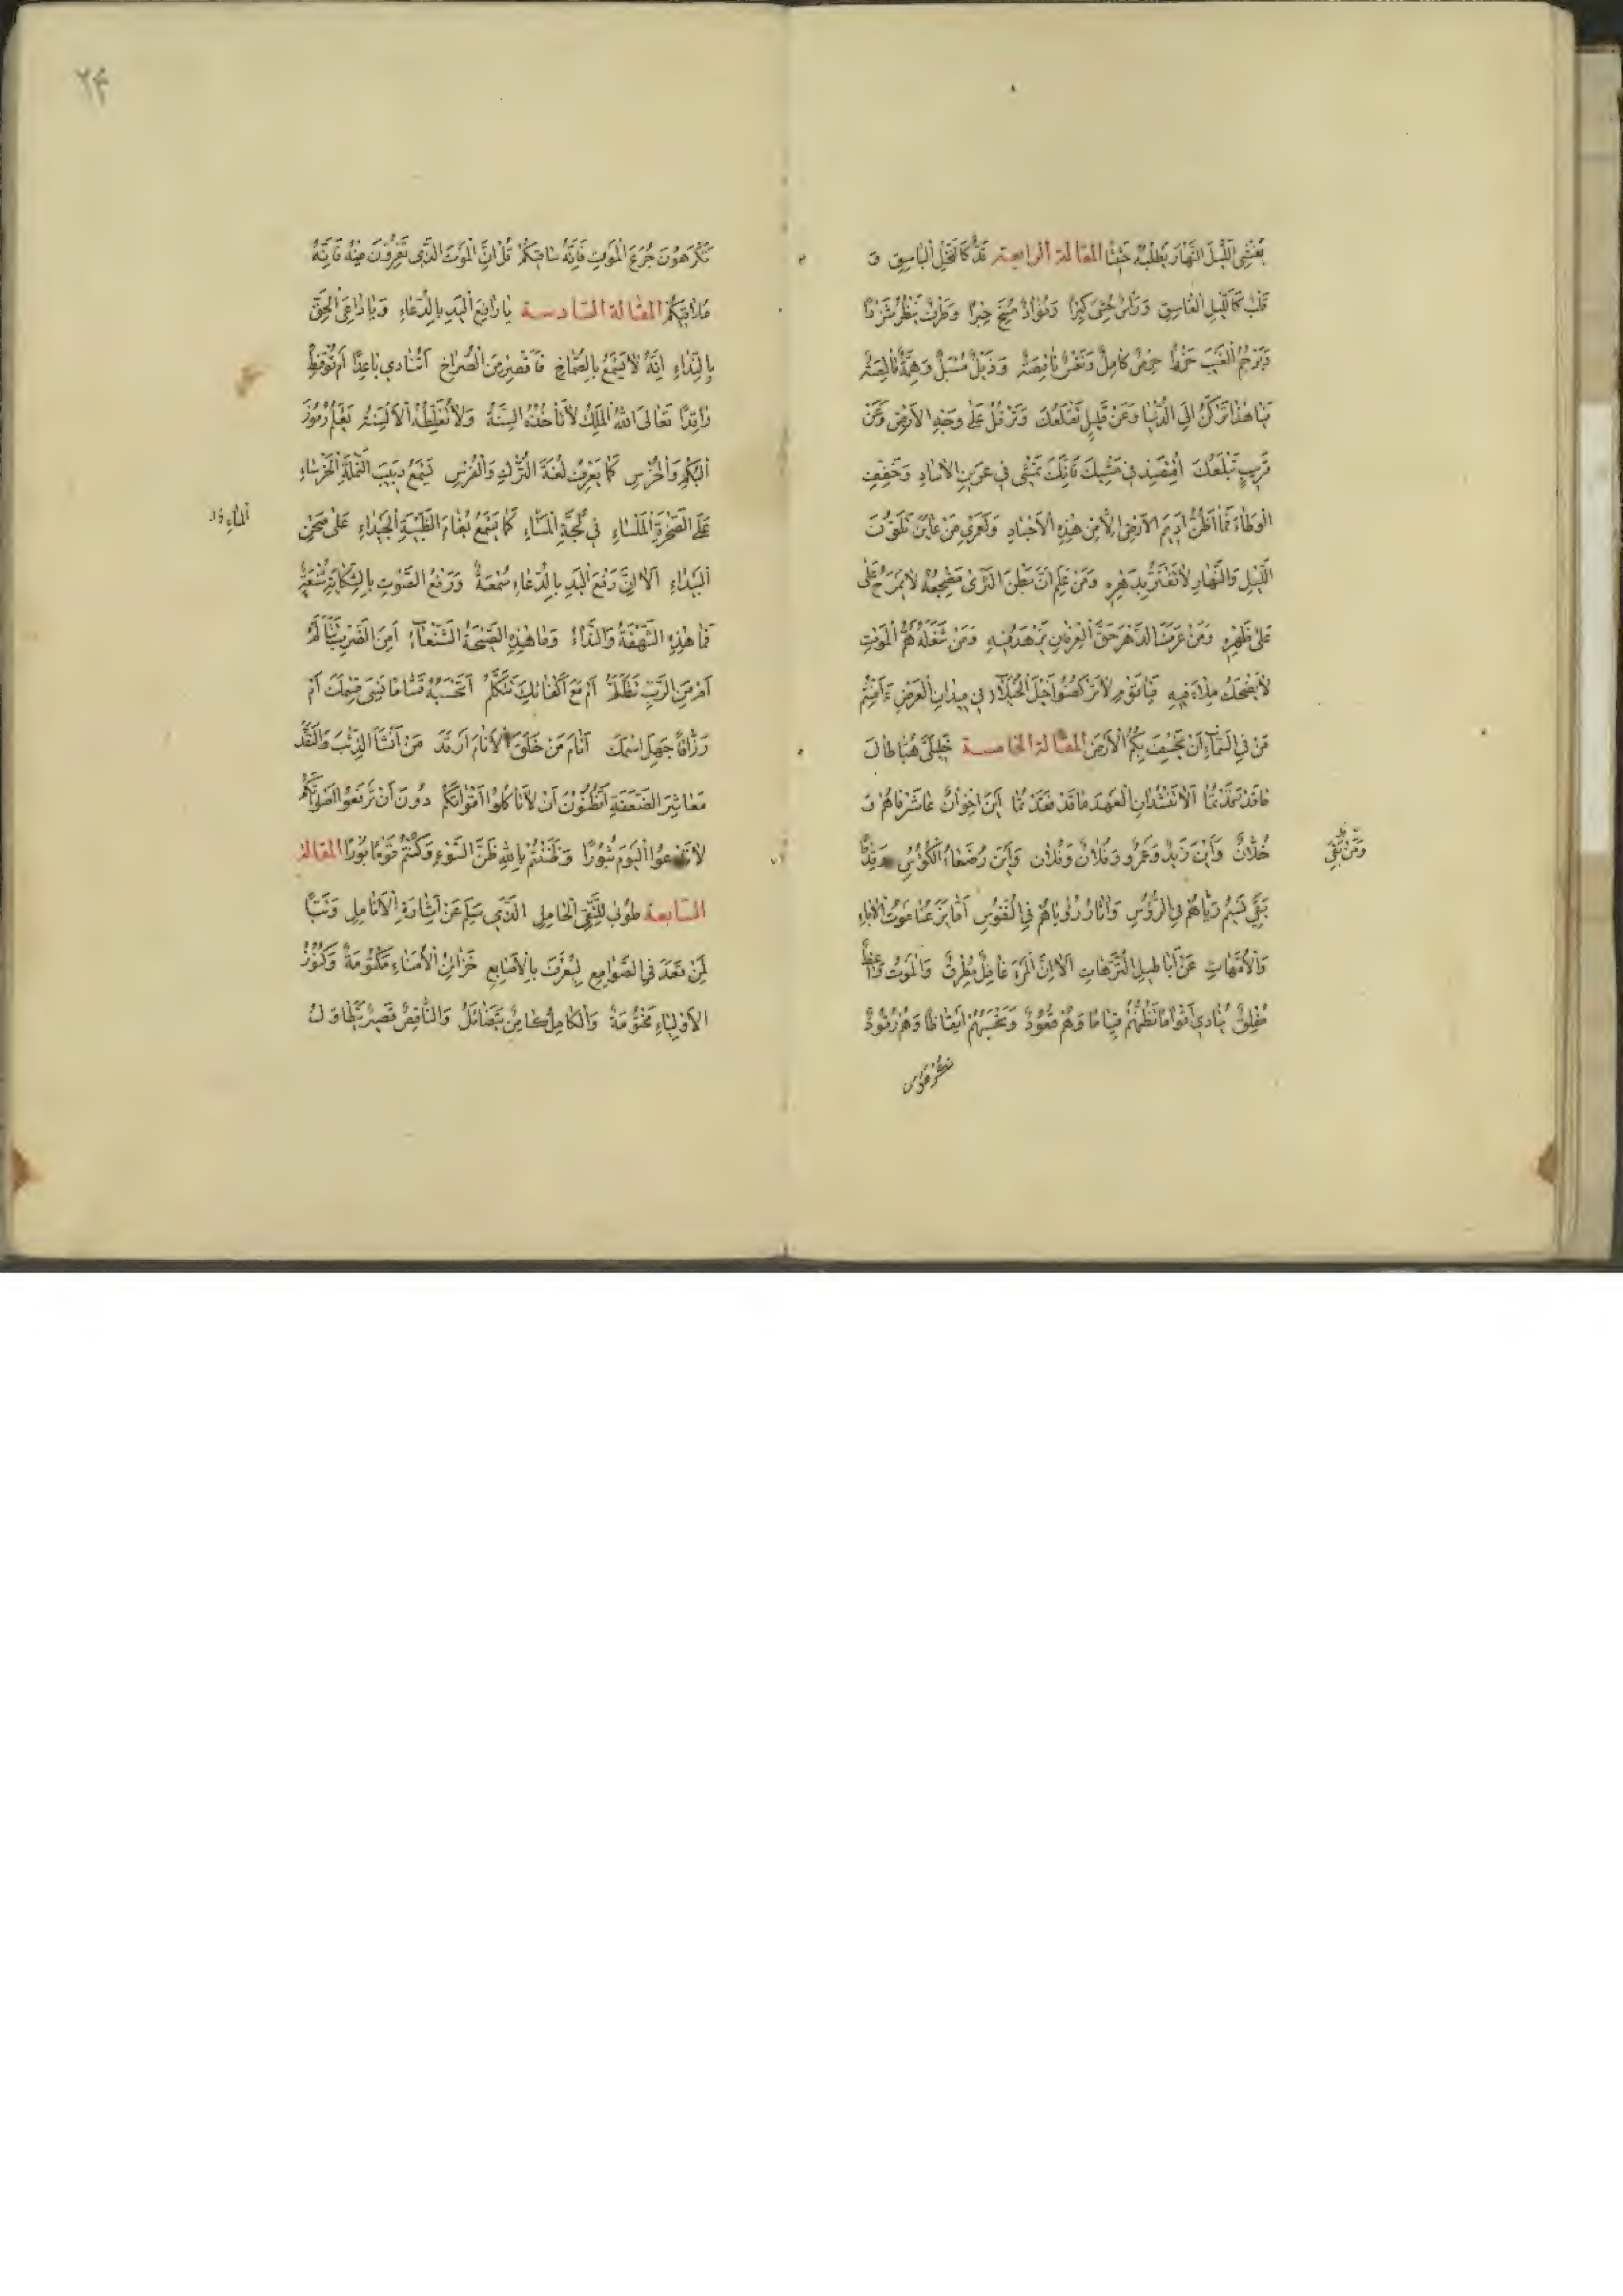 يُغْشِي اللَّيْلَ النَّهَارَ يَطْلُبُهُ حَثِيثًا المقالة الرابعة قَدٌّ كَالنَّخْلِ الْبَاسِقِ وَ
قَلْبٌ كَاللَّيْلِ الْغَاسِقِ وَرَأْسٌ حُشِيَ كِبْرًا وَفُؤَادٌ مُسِخَ حِبْرًا وَطَرْفٌ يَنْظُرُ شَزْرًا
وَيَرْجُمُ الْغَيْبَ حَزْرًا حِرْصٌ كَامِلٌ وَنَفْسٌ نَاقِصَةٌ وَذَيْلٌ مُسْبَلٌ وَهِمَّةٌ قَالِصَةٌ
فَيَا هٰذَا تَرْكَنُ إِلَى الدُّنْيَا وَعَنْ قَلِيلٍ تَقْلَعُكَ وَتَرْفُلُ عَلَى وَجْهِ الْأَرْضِ وَعَنْ
قَرِيبٍ تَبْلَعُكَ اقْصِدْ فِي مَشْيِكَ فَإِنَّكَ تَمْشِي فِي عَرِينِ الْآسَادِ وَخَفِّفِ
الْوَطْأَ فَمَا أَظُنُّ أَدِيمَ الْأَرْضِ إِلَّا مِنْ هٰذِهِ الْأَجْسَادِ وَلَعَمْرِي مَنْ عَايَنَ تَلَوُّنَ
اللَّيْلِ وَالنَّهَارِ لَا يَغْتَرُّ بِدَهْرِهِ وَمَنْ عَلِمَ أَنَّ بَطْنَ الثَّرَى مَضْجَعُهُ لَا يَمْرَحُ عَلَى
عَلَى ظَهْرِهِ وَمَنْ عَرَفَ الدَّهْرَ حَقَّ الْعِرْفَانِ يَزْهَدُ فِيهِ وَمَنْ شَغَلَهُ هَمُّ الْمَوْتِ
لَا يَضْحَكُ مِلْءَ فِيهِ فَيَا قَوْمِ لَا تَرْكُضُوا خَيْلَ الْخُيَلَاءِ فِي مِيدَانِ الْعَرْضِ ءَأَمِنْتُمْ
مَنْ فِي السَّمَاءِ أَنْ يَخْسِفَ بِكُمُ الْأَرْضَ المقالة الخامسة خَلِيلَيَّ هُبَّا طَالَ
مَا قَدْ رَقَدْتُمَا أَلَا تَنْشُدَانِ الْعَهْدَ مَا قَدْ فَقَدْتُمَا أَيْنَ إِخْوَانٌ عَاشَرْنَاهُمْ وَ
خُلَّانٌ وَأَيْنَ زَيْدٌ وَعَمْرٌو وَفُلَانٌ وَفُلَانٌ وَأَيْنَ رُضَعَاءُ الْكُؤُسِ
وَمَنْ بَقِيَ
بَقِيَ نَسِيمُ رَيَّاهُمْ فِي الرُّؤُسِ وَآثَارُ رُؤْيَاهُمْ فِي النُّفُوسِ أَمَا يَزَعُنَا مَوْتُ الْآبَاءِ
وَالْأُمَّهَاتِ عَنْ أَبَاطِيلِ التُّرَّهَاتِ أَلَا إِنَّ الْمَرْءَ غَافِلٌ مُطْرِقٌ وَالْمَوْتُ وَاعِظٌ
مُفْلِقٌ يُنَادِي أَقْوَامًا تَظُنُّهُمْ قِيَامًا وَهُمْ قُعُودٌ وَتَحْسَبُهُمْ أَيْقَاظًا وَهُمْ رُقُودٌ
٢٤
تَكْرَهُونَ جُرَعَ الْمَوْتِ فَإِنَّهُ سَاقِيكُمْ قُلْ إِنَّ الْمَوْتَ الَّذِي تَفِرُّونَ مِنْهُ فَإِنَّهُ
مُلَاقِيكُمْ المقالة السادسة يَا رَافِعَ الْيَدِ بِالدُّعَاءِ وَيَا دَاعِيَ الْحَقِّ
بِالنِّدَاءِ إِنَّهُ لَا يَسْمَعُ بِالصِّمَاخِ فَأَقْصِرْ مِنَ الصُّرَاخِ أَتُنَادِي بَاعِدًا أَمْ تُوقِظُ
رَاقِدًا تَعَالَى اللهُ الْمَلِكُ لَا تَأْخُذُهُ السِّنَةُ وَلَا تُغَلِّطُهُ الْأَلْسِنَةُ يَعْلَمُ رُمُوزَ
الْبُكْمِ وَالْخُرْسِ كَمَا يَعْرِفُ لُغَةَ التُّرْكِ وَالْفُرْسِ يَسْمَعُ دَبِيبَ النَّمْلَةِ الْخَرْسَاءِ
عَلَى الصَّخْرَةِ الْمَلْسَاءِ فِي لُجَّةِ الْمَسَاءِ كَمَا يَسْمَعُ بُغَامَ الظَّبْيَةِ الْجَيْدَاءِ عَلَى صَحْنِ
الْبَيْدَاءِ أَلَا إِنَّ رَفْعَ الْيَدِ بِالدُّعَاءِ سُمْعَةٌ وَرَفْعُ الصَّوْتِ بِالشِّكَايَةِ شُنْعَةٌ
فَمَا هٰذِهِ الشَّهْقَةُ وَالنِّدَاءُ وَمَا هٰذِهِ الصَّيْحَةُ الشَّنْعَاءُ أَمِنَ الضَّرْبِ تَتَأَلَّمُ
أَمْ مِنَ الرَّبِّ تَظَلَّمُ أَمْ مَعَ أَكْفَائِكَ تَتَكَلَّمُ أَتَحْسَبُهُ قَسَّامًا نَسِيَ قِسْمَكَ أَمْ
رَزَّاقًا جَهِلَ اسْمَكَ أَنَامَ مَنْ خَلَقَ الْأَنَامَ أَرَقَدَ مَنْ أَنْشَأَ الذِّئْبَ وَالنَّقَدَ
مَعَاشِرَ الضَّعَفَةِ أَتَظُنُّونَ أَنْ لَا تَأْكُلُوا أَقْوَاتَكُمْ دُونَ أَنْ تَرْفَعُوا أَصْوَاتَكُمْ
لَا تَدْعُوا الْيَوْمَ ثُبُورًا وَظَنَنْتُمْ بِاللهِ ظَنَّ السَّوْءِ وَكُنْتُمْ قَوْمًا بُورًا المقالة
السابعة طُوبَى لِلتَّقِيِّ الْخَامِلِ الَّذِي سَلِمَ عَنْ إِشَارَةِ الْأَنَامِلِ وَتَبًّا
لِمَنْ قَعَدَ فِي الصَّوَامِعِ لِيُعْرَفَ بِالْأَصَابِعِ خَزَائِنُ الْأُمَنَاءِ مَكْتُومَةٌ وَكُنُوزُ
الْأَوْلِيَاءِ مَخْتُومَةٌ وَالْكَامِلُ كَامِنٌ يَتَضَائَلُ وَالنَّاقِصُ قَصِيرٌ يَتَطَاوَلُ